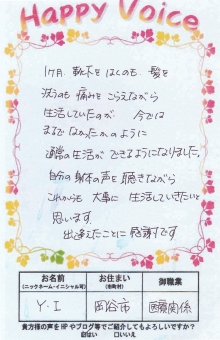 Happy Voice
1ヶ月、靴下をはくのも、髪を
洗うのも 痛みをこらえながら
生活していたのが 今では
まるでなかったかのように
通常の生活が できるようになりました。
自分の身体の声を 聴きながら
これからも 大事に 生活していきたいと
思います。
出逢えたことに 感謝です
お名前
(ニックネーム・イニシャル可)
お住まい
(市町村)
御職業
Y・I
岡谷市
医療関係
貴方様の声をHPやブログ等でご紹介してもよろしいですか?
はい
□いいえ